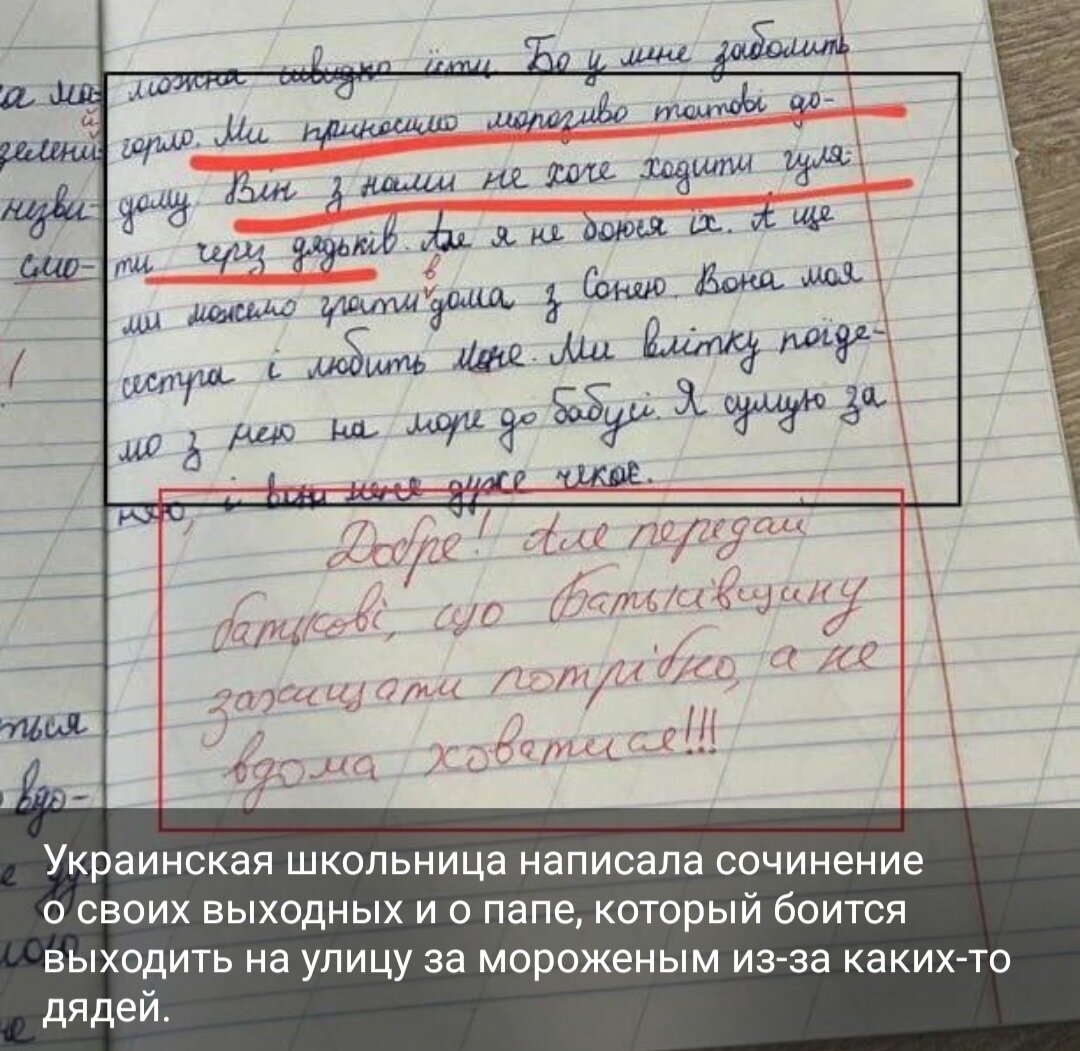 можна швидко їсти. Бо у мене заболить
горло. Ми приносимо морозиво татові до-
дому. Він з нами не хоче ходити гуля-
ти через дядьків. Але я не боюся їх. А ще
ми можемо грати вдома з Сонею. Вона моя
сестра і любить мене. Ми влітку поїде-
мо з нею на море до бабусі. Я сумую за
нею, і вона мене дуже чекає.
Добре! Але передай
батькові, що Батьківщину
защищати потрібно, а не
вдома ховатися!!!
зелений
незви-
смо-
ться
вдо-
Украинская школьница написала сочинение
о своих выходных и о папе, который боится
выходить на улицу за мороженым из-за каких-то
дядей.